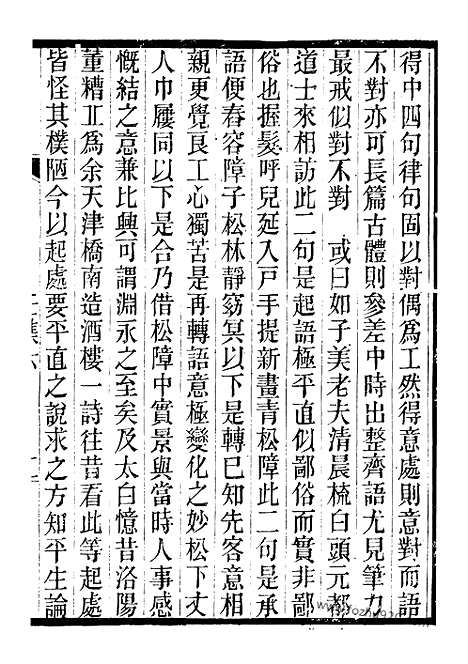 得中四句律句固以對偶爲工然得意處則意對而語
不對亦可長篇古體則參差中時出整齊語尤見筆力
最戒似對不對　或曰如子美老夫清晨梳白頭元都
道士來相訪此二句是起語極平直似鄙俗而實非鄙
俗也握髮呼兒延入戸手提新畫青松障此二句是承
語便舂容障子松林靜窈冥以下是轉已知先客意相
親更覺良工心獨苦是再轉語意極變化之妙松下丈
人巾屨同以下是合乃借松障中實景與當時人事感
慨結之意兼比興可謂淵永之至矣及太白憶昔洛陽
董糟丘爲余天津橋南造酒樓一詩往昔看此等起處
皆怪其樸陋今以起處要平直之說求之方知平生論